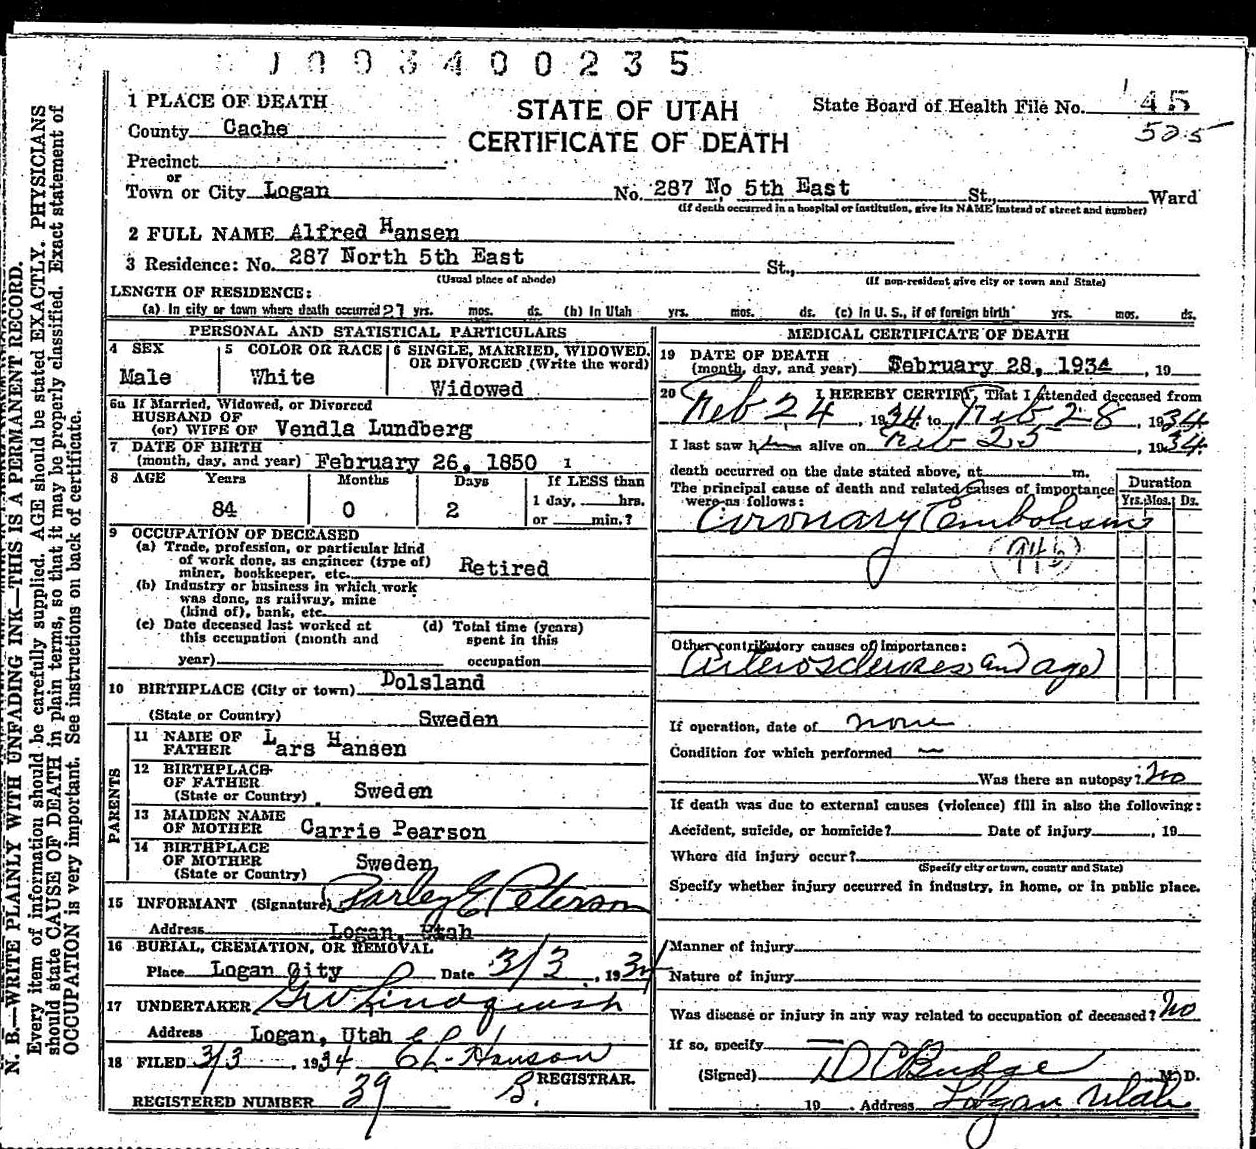 1 0 0 3 4 0 0 2 3 5
1 PLACE OF DEATH
County Cache
Precinct
or
Town or City Logan No. 287 No 5th East St., Ward
(If death occurred in a hospital or institution, give its NAME instead of street and number)
STATE OF UTAH
CERTIFICATE OF DEATH
State Board of Health File No. 45
505
2 FULL NAME Alfred Hansen
3 Residence: No. 287 North 5th East St.,
(Usual place of abode) (If non-resident give city or town and State)
LENGTH OF RESIDENCE:
(a) In city or town where death occurred 21 yrs. mos. ds. (b) In Utah yrs. mos. ds. (c) In U. S., if of foreign birth yrs. mos. ds.
PERSONAL AND STATISTICAL PARTICULARS
4 SEX
Male
5 COLOR OR RACE
White
6 SINGLE, MARRIED, WIDOWED,
OR DIVORCED (Write the word)
Widowed
6a If Married, Widowed, or Divorced
HUSBAND OF
(or) WIFE OF Vendla Lundberg
7 DATE OF BIRTH
(month, day, and year) February 26, 1850 1
8 AGE Years Months Days If LESS than
84 0 2 1 day, hrs.
or min.?
9 OCCUPATION OF DECEASED
(a) Trade, profession, or particular kind
of work done, as engineer (type of)
miner, bookkeeper, etc. Retired
(b) Industry or business in which work
was done, as railway, mine
(kind of), bank, etc.
(c) Date deceased last worked at
this occupation (month and
year)
(d) Total time (years)
spent in this
occupation
10 BIRTHPLACE (City or town) Dolsland
(State or Country) Sweden
PARENTS
11 NAME OF
FATHER Lars Hansen
12 BIRTHPLACE
OF FATHER
(State or Country) Sweden
13 MAIDEN NAME
OF MOTHER Carrie Pearson
14 BIRTHPLACE
OF MOTHER
(State or Country) Sweden
15 INFORMANT (Signature) Parley E Peterson
Address Logan, Utah
16 BURIAL, CREMATION, OR REMOVAL
Place Logan City Date 3/3, 1934
17 UNDERTAKER G W Lindquist
Address Logan, Utah
18 FILED 3/3, 1934 E L Hanson
REGISTRAR.
REGISTERED NUMBER 39
MEDICAL CERTIFICATE OF DEATH
19 DATE OF DEATH
(month, day, and year) February 28, 1934, 19
20 I HEREBY CERTIFY, That I attended deceased from
Feb 24, 1934 to Feb 28, 1934
I last saw him alive on Feb 25, 1934
death occurred on the date stated above, at m.
The principal cause of death and related causes of importance
were as follows:
Duration
Yrs. Mos. Ds.
Coronary Embolism
94b
Other contributory causes of importance:
Arteriosclerosis and age
If operation, date of none
Condition for which performed —
Was there an autopsy? No
If death was due to external causes (violence) fill in also the following:
Accident, suicide, or homicide? Date of injury, 19
Where did injury occur?
(Specify city or town, county and State)
Specify whether injury occurred in industry, in home, or in public place.
Manner of injury
Nature of injury
Was disease or injury in any way related to occupation of deceased? No
If so, specify
(Signed) D C Budge M. D.
19 Address Logan Utah
N. B.—WRITE PLAINLY WITH UNFADING INK—THIS IS A PERMANENT RECORD.
Every item of information should be carefully supplied. AGE should be stated EXACTLY. PHYSICIANS
should state CAUSE OF DEATH in plain terms, so that it may be properly classified. Exact statement of
OCCUPATION is very important. See instructions on back of certificate.